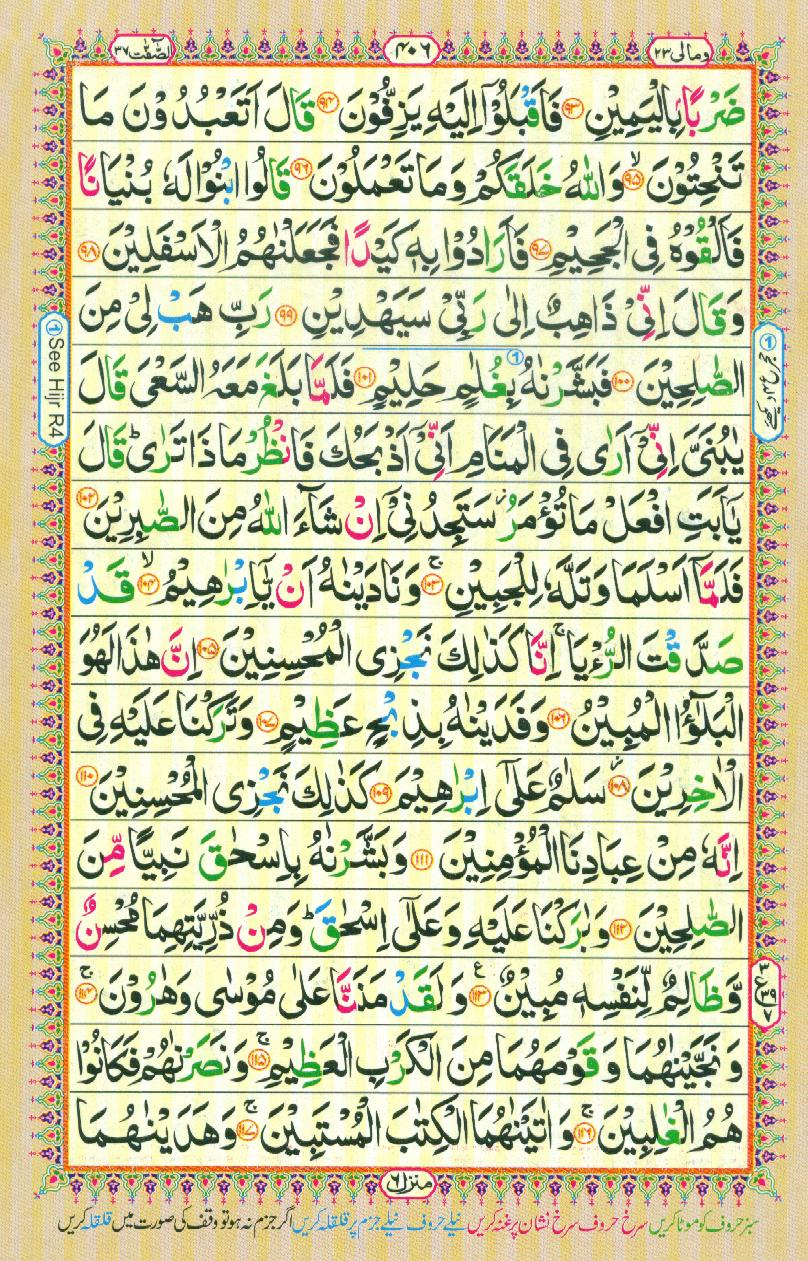 ومالی ۲۳
۴۰۶
الصّٰفّٰت ۳۷
ضَرْبًۢا بِالْیَمِیْنِ ﴿۹۳﴾ فَاَقْبَلُوْۤا اِلَیْهِ یَزِفُّوْنَ ﴿۹۴﴾ قَالَ اَتَعْبُدُوْنَ مَا
تَنْحِتُوْنَ ﴿ۙ۹۵﴾ وَاللّٰهُ خَلَقَكُمْ وَمَا تَعْمَلُوْنَ ﴿۹۶﴾ قَالُوا ابْنُوْا لَهٗ بُنْیَانًا
فَاَلْقُوْهُ فِی الْجَحِیْمِ ﴿۹۷﴾ فَاَرَادُوْا بِهٖ كَیْدًا فَجَعَلْنٰهُمُ الْاَسْفَلِیْنَ ﴿۹۸﴾
وَقَالَ اِنِّیْ ذَاهِبٌ اِلٰی رَبِّیْ سَیَهْدِیْنِ ﴿۹۹﴾ رَبِّ هَبْ لِیْ مِنَ
الصّٰلِحِیْنَ ﴿۱۰۰﴾ فَبَشَّرْنٰهُ بِغُلٰمٍ حَلِیْمٍ ﴿۱۰۱﴾ فَلَمَّا بَلَغَ مَعَهُ السَّعْیَ قَالَ
یٰبُنَیَّ اِنِّیْۤ اَرٰی فِی الْمَنَامِ اَنِّیْۤ اَذْبَحُكَ فَانْظُرْ مَاذَا تَرٰی ؕ قَالَ
یٰۤاَبَتِ افْعَلْ مَا تُؤْمَرُ ؗ سَتَجِدُنِیْۤ اِنْ شَآءَ اللّٰهُ مِنَ الصّٰبِرِیْنَ ﴿۱۰۲﴾
فَلَمَّاۤ اَسْلَمَا وَتَلَّهٗ لِلْجَبِیْنِ ﴿ۚ۱۰۳﴾ وَنَادَیْنٰهُ اَنْ یّٰۤاِبْرٰهِیْمُ ﴿ۙ۱۰۴﴾ قَدْ
صَدَّقْتَ الرُّءْیَا ۚ اِنَّا كَذٰلِكَ نَجْزِی الْمُحْسِنِیْنَ ﴿۱۰۵﴾ اِنَّ هٰذَا لَهُوَ
الْبَلٰٓؤُا الْمُبِیْنُ ﴿۱۰۶﴾ وَفَدَیْنٰهُ بِذِبْحٍ عَظِیْمٍ ﴿۱۰۷﴾ وَتَرَكْنَا عَلَیْهِ فِی
الْاٰخِرِیْنَ ﴿ۖ۱۰۸﴾ سَلٰمٌ عَلٰۤی اِبْرٰهِیْمَ ﴿۱۰۹﴾ كَذٰلِكَ نَجْزِی الْمُحْسِنِیْنَ ﴿۱۱۰﴾
اِنَّهٗ مِنْ عِبَادِنَا الْمُؤْمِنِیْنَ ﴿۱۱۱﴾ وَبَشَّرْنٰهُ بِاِسْحٰقَ نَبِیًّا مِّنَ
الصّٰلِحِیْنَ ﴿۱۱۲﴾ وَبٰرَكْنَا عَلَیْهِ وَعَلٰۤی اِسْحٰقَ ؕ وَمِنْ ذُرِّیَّتِهِمَا مُحْسِنٌ
وَّظَالِمٌ لِّنَفْسِهٖ مُبِیْنٌ ﴿۱۱۳﴾ وَلَقَدْ مَنَنَّا عَلٰی مُوْسٰی وَهٰرُوْنَ ﴿ۚ۱۱۴﴾
وَنَجَّیْنٰهُمَا وَقَوْمَهُمَا مِنَ الْكَرْبِ الْعَظِیْمِ ﴿ۚ۱۱۵﴾ وَنَصَرْنٰهُمْ فَكَانُوْا
هُمُ الْغٰلِبِیْنَ ﴿ۚ۱۱۶﴾ وَاٰتَیْنٰهُمَا الْكِتٰبَ الْمُسْتَبِیْنَ ﴿ۚ۱۱۷﴾ وَهَدَیْنٰهُمَا
① See Hijr R4
۳ ع ۳۹ ۷
منزل ۶
سبز حروف کو موٹا کریں سرخ حروف سرخ نشان پر غنہ کریں نیلے حروف نیلے جزم پر قلقلہ کریں اگر جزم نہ ہو تو وقف کی صورت میں قلقلہ کریں